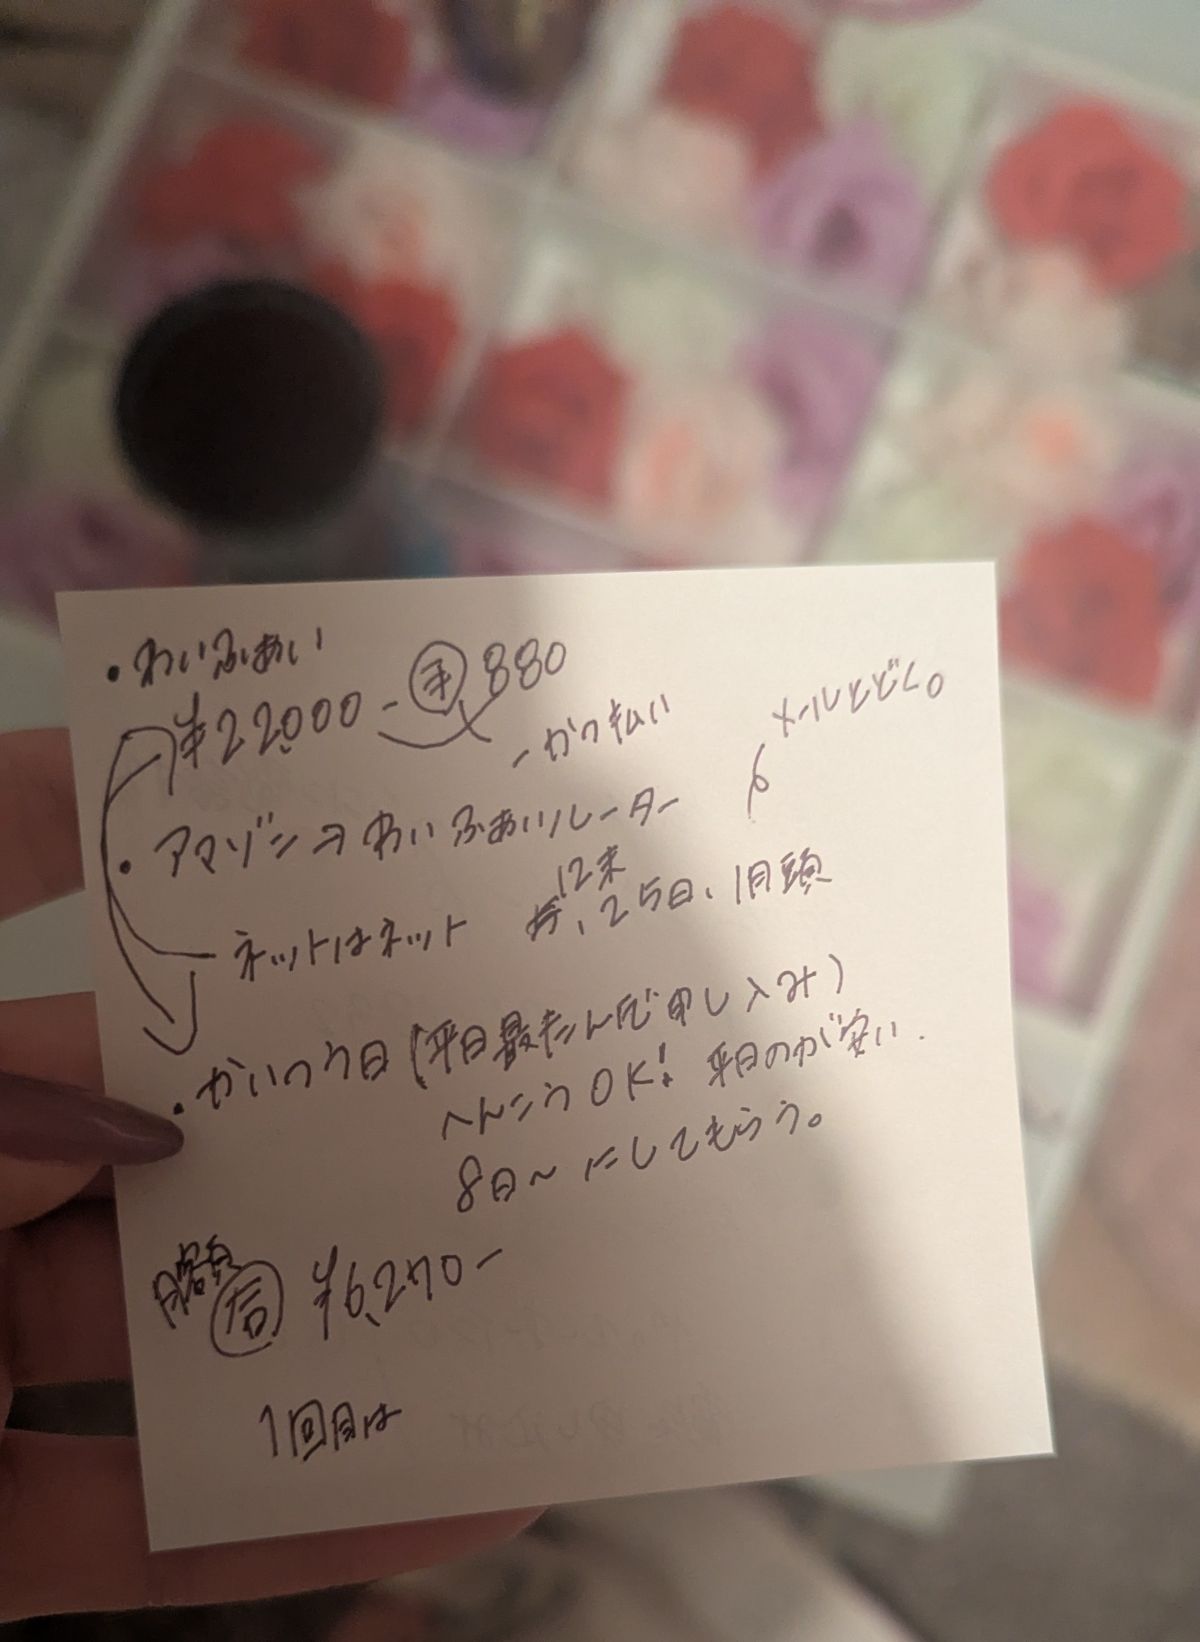 ・わいふぁい
¥22,000-㊍880
一かつ払い
メールとどく。
・アマゾン⇒わいふぁいルーター
12末
ネットはネット 25日、1月頭
・かいつう日(平日最たんで申し込み)
へんこうOK! 平日のが安い.
8日〜にしてもらう。
月額 ¥6,270-
1回目は